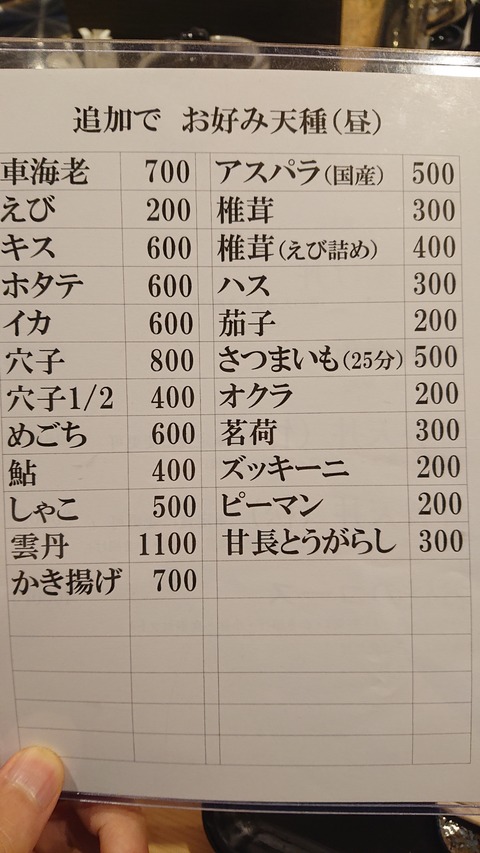 追加で お好み天種(昼)
車海老 700 アスパラ(国産) 500
えび 200 椎茸 300
キス 600 椎茸(えび詰め) 400
ホタテ 600 ハス 300
イカ 600 茄子 200
穴子 800 さつまいも(25分) 500
穴子1/2 400 オクラ 200
めごち 600 茗荷 300
鮎 400 ズッキーニ 200
しゃこ 500 ピーマン 200
雲丹 1100 甘長とうがらし 300
かき揚げ 700